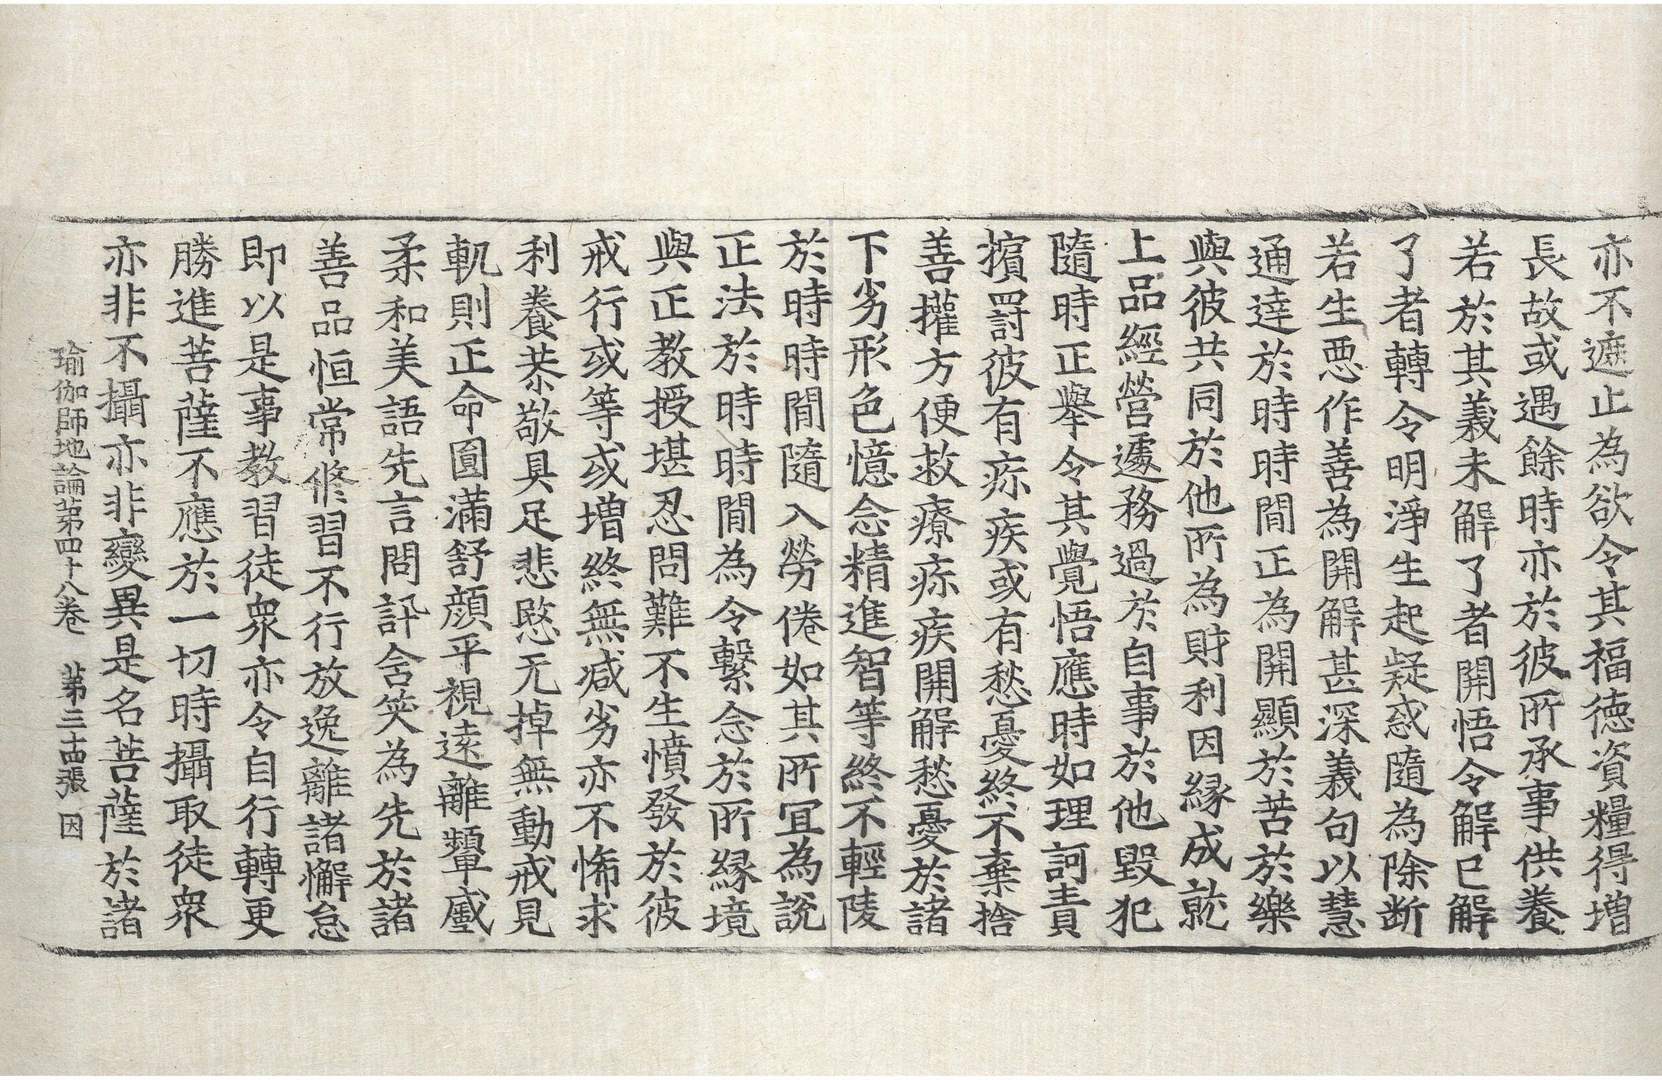 亦不遮止為欲令其福德資糧得增
長故或遇餘時亦於彼所承事供養
若於其義未解了者開悟令解已解
了者轉令明淨生起疑惑隨為除断
若生悪作善為開解甚深義句以慧
通達於時時閒正為開顯於苦於樂
與彼共同於他所為財利因縁成就
上品經營遽務過於自事於他毀犯
隨時正舉令其覺悟應時如理訶責
擯罸彼有疹疾或有愁憂終不棄捨
善權方便救療疹疾開解愁憂於諸
下劣形色憶念精進智等終不輕陵
於時時閒隨入勞倦如其所冝為說
正法於時時閒為令繫念於所縁境
與正教授堪忍問難不生憤發於彼
戒行或等或增終無减劣亦不悕求
利養恭敬具足悲愍无掉無動戒見
軌則正命圎滿舒顔平視遠離顰蹙
柔和美語先言問訊含笑為先於諸
善品恒常修習不行放逸離諸懈怠
即以是事教習徒衆亦令自行轉更
勝進菩薩不應於一切時攝取徒衆
亦非不攝亦非變異是名菩薩於諸
瑜伽師地論第四十八卷 第三十四張 因